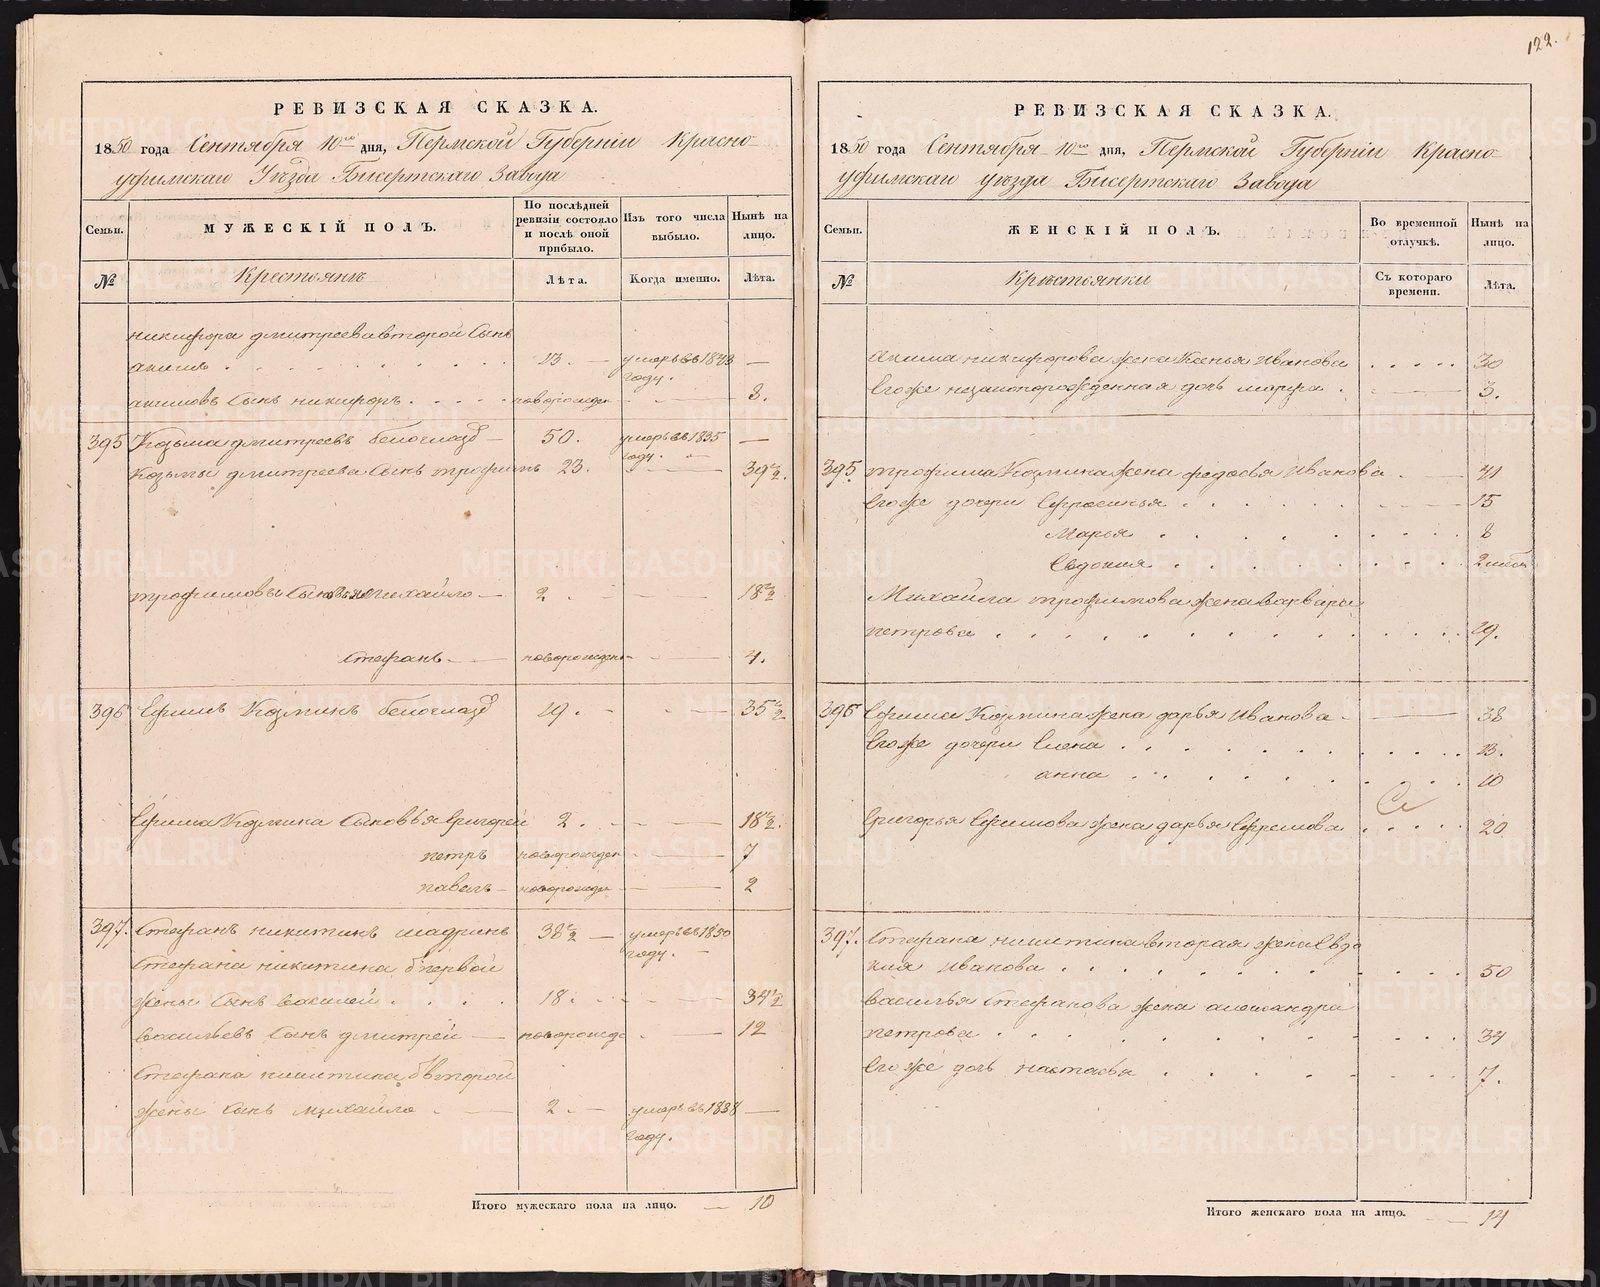 122.
РЕВИЗСКАЯ СКАЗКА.
1850 года Сентября 10го дня, Пермской Губерніи Красно
уфимскаго Уѣзда Бисертскаго Завода
Семьи.
МУЖЕСКІЙ ПОЛЪ.
По послѣдней ревизіи состояло и послѣ оной прибыло.
Изъ того числа выбыло.
Нынѣ на лицо.
№
Крестьянъ
Лѣта.
Когда именно.
Лѣта.
никифора дмитреева второй Сынъ
акимъ . . . . . . . . 23. — умеръ въ 1843 году. —
акимовъ Сынъ никифоръ . . . . новорожден — 8.
395 Козьма дмитреевъ белоглазъ — 50. умеръ въ 1835 году. —
Козьмы дмитреева Сынъ трофимъ 23. — 39½.
трофимовы Сыновья Михайло — 2 . — 18½
Стефанъ — новорожден — 4.
396 Ефимъ Козминъ белоглазъ 19. — 35½.
Ефима Козмина Сыновья Григорей 2. — 18½.
петръ новорожден — 7
павелъ — новорожден — 2
397. Стефанъ никитинъ шадринъ 38½ — умеръ въ 1850 году. —
Стефана никитина б первой
жены Сынъ василей . . . . 18. — 34½
васильевъ Сынъ дмитрей — новорожде — 12
Стефана никитина б второй
жены Сынъ михайло . — 2. — умеръ въ 1838 году. —
Итого мужескаго пола на лицо. — 10
РЕВИЗСКАЯ СКАЗКА.
1850 года Сентября 10го дня, Пермской Губерніи Красно
уфимскаго уѣзда Бисертскаго Завода
Семьи.
ЖЕНСКІЙ ПОЛЪ.
Во временной отлучкѣ.
Нынѣ на лицо.
№
Крестьянки
Съ котораго времени.
Лѣта.
акима никифорова жена Ксенья Иванова . . . . . 30
Егоже незаконорожденная дочь марфа . — 3.
395. трофима Козмина жена федосья Иванова . — 41
Егоже дочери Ефросинья . . . . . 15
Марья . . . . . 8
Евдокия . . . . . 2
Михайла трофимова жена варвара
петрова . . . . . 19.
396 Ефима Козмина жена дарья Иванова — 38
Егоже дочери Елена . . . . . 13.
анна . . . . . 10
Григорья Ефимова жена дарья Ефремова . . . . . 20
397. Стефана никитина вторая жена Евдо
кия Иванова . . . . . 50
василья Стефанова жена александра
петрова . . . . . 34
Егоже дочь настасья . . . . . 7.
Итого женскаго пола на лицо. — 14
METRIKI.GASO-URAL.RU